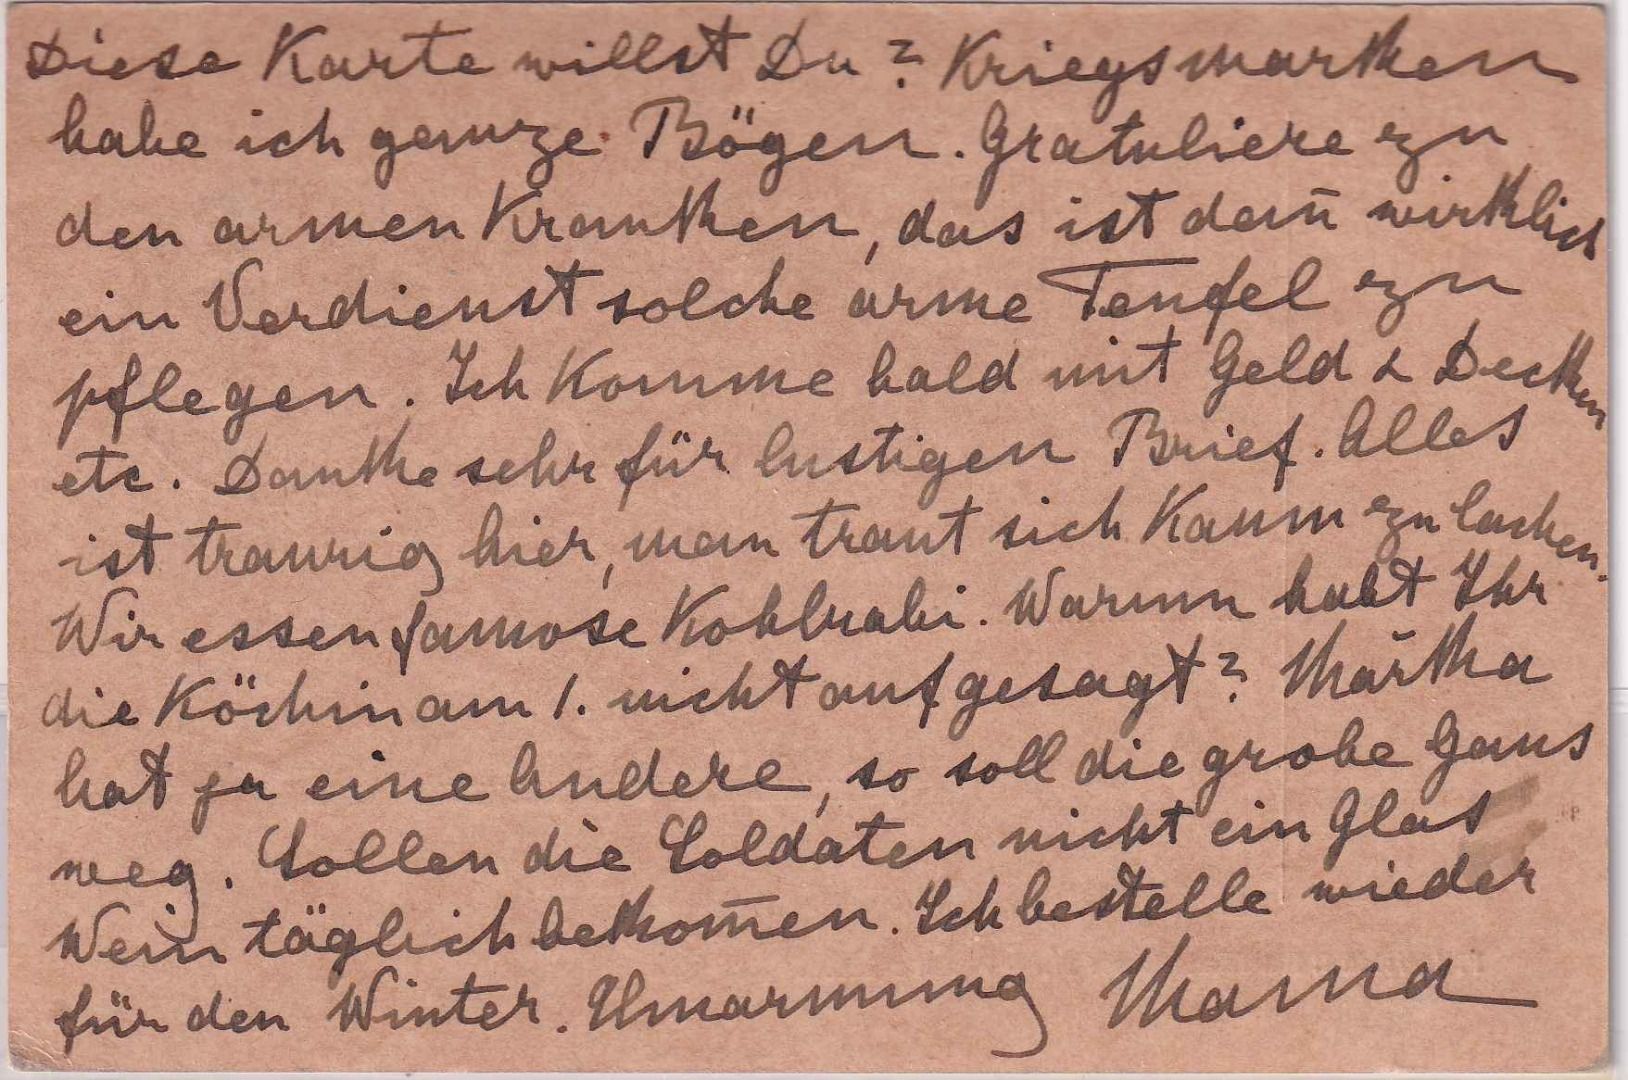 Diese Karte willst Du? Kriegsmarken
habe ich ganze Bögen. Gratuliere zu
den armen Kranken, das ist dan̄ wirklich
ein Verdienst solche arme Teufel zu
pflegen. Ich komme bald mit Geld & Decken
etc. Danke sehr für lustigen Brief. Alles
ist traurig hier, man traut sich kaum zu lachen.
Wir essen famose Kohlrabi. Warum habt Ihr
die Köchin am 1. nicht aufgesagt? Mártha
hat ja eine Andere, so soll die grobe Gans
weg. Sollen die Soldaten nicht ein Glas
Wein täglich bekom̄en. Ich bestelle wieder
für den Winter. Umarmung Mama